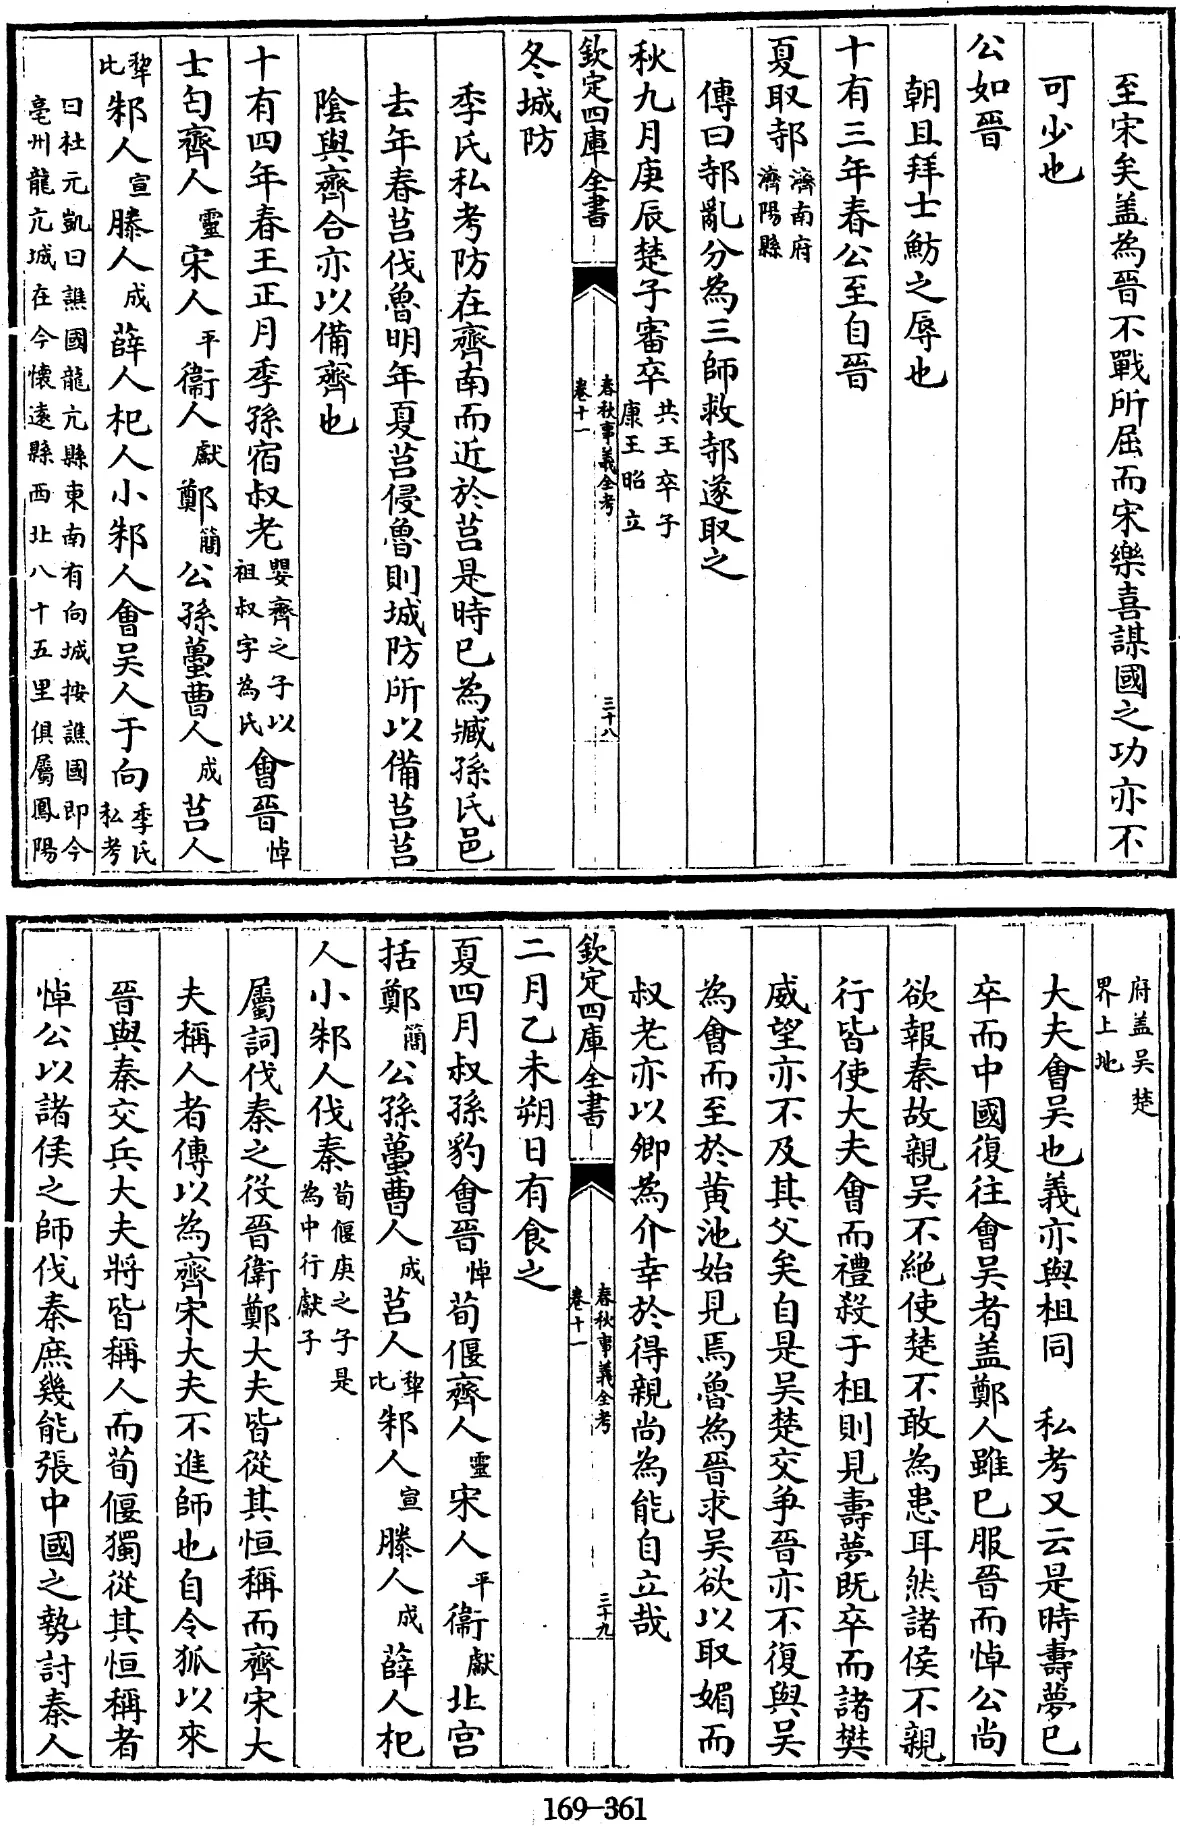 至宋矣盖為晉不戰所屈而宋樂喜謀國之功亦不
可少也
公如晉
朝且拜士魴之辱也
十有三年春公至自晉
夏取邿濟南府濟陽縣
傳曰邿亂分為三師救邿遂取之
秋九月庚辰楚子審卒共王卒子康王昭立
欽定四庫全書 春秋事義全考 卷十一 三十八
冬城防
季氏私考防在齊南而近於莒是時已為臧孫氏邑
去年春莒伐魯明年夏莒侵魯則城防所以備莒莒
陰與齊合亦以備齊也
十有四年春王正月季孫宿叔老嬰齊之子以祖叔字為氏會晉悼
士匄齊人靈宋人平衞人獻鄭簡公孫蠆曹人成莒人
犂比邾人宣滕人成薛人杞人小邾人會吴人于向季氏私考
曰杜元凱曰譙國龍亢縣東南有向城按譙國即今
亳州龍亢城在今懷遠縣西北八十五里俱屬鳳陽
府盖吴楚界上地
大夫會吴也義亦與柤同 私考又云是時壽夢已
卒而中國復往會吴者盖鄭人雖已服晉而悼公尚
欲報秦故親吴不絕使楚不敢為患耳然諸侯不親
行皆使大夫會而禮殺于柤則見壽夢既卒而諸樊
威望亦不及其父矣自是吴楚交争晉亦不復與吴
為會而至於黄池始見焉魯為晉求吴欲以取媚而
叔老亦以卿為介幸於得親尚為能自立哉
欽定四庫全書 春秋事義全考 卷十一 三十九
二月乙未朔日有食之
夏四月叔孫豹會晉悼荀偃齊人靈宋人平衞獻北宫
括鄭簡公孫蠆曹人成莒人犂比邾人宣滕人成薛人杞
人小邾人伐秦荀偃庚之子是為中行獻子
屬詞伐秦之役晉衛鄭大夫皆從其恒稱而齊宋大
夫稱人者傳以為齊宋大夫不進師也自令狐以來
晉與秦交兵大夫將皆稱人而荀偃獨從其恒稱者
悼公以諸侯之師伐秦庶幾能張中國之勢討秦人
169-361